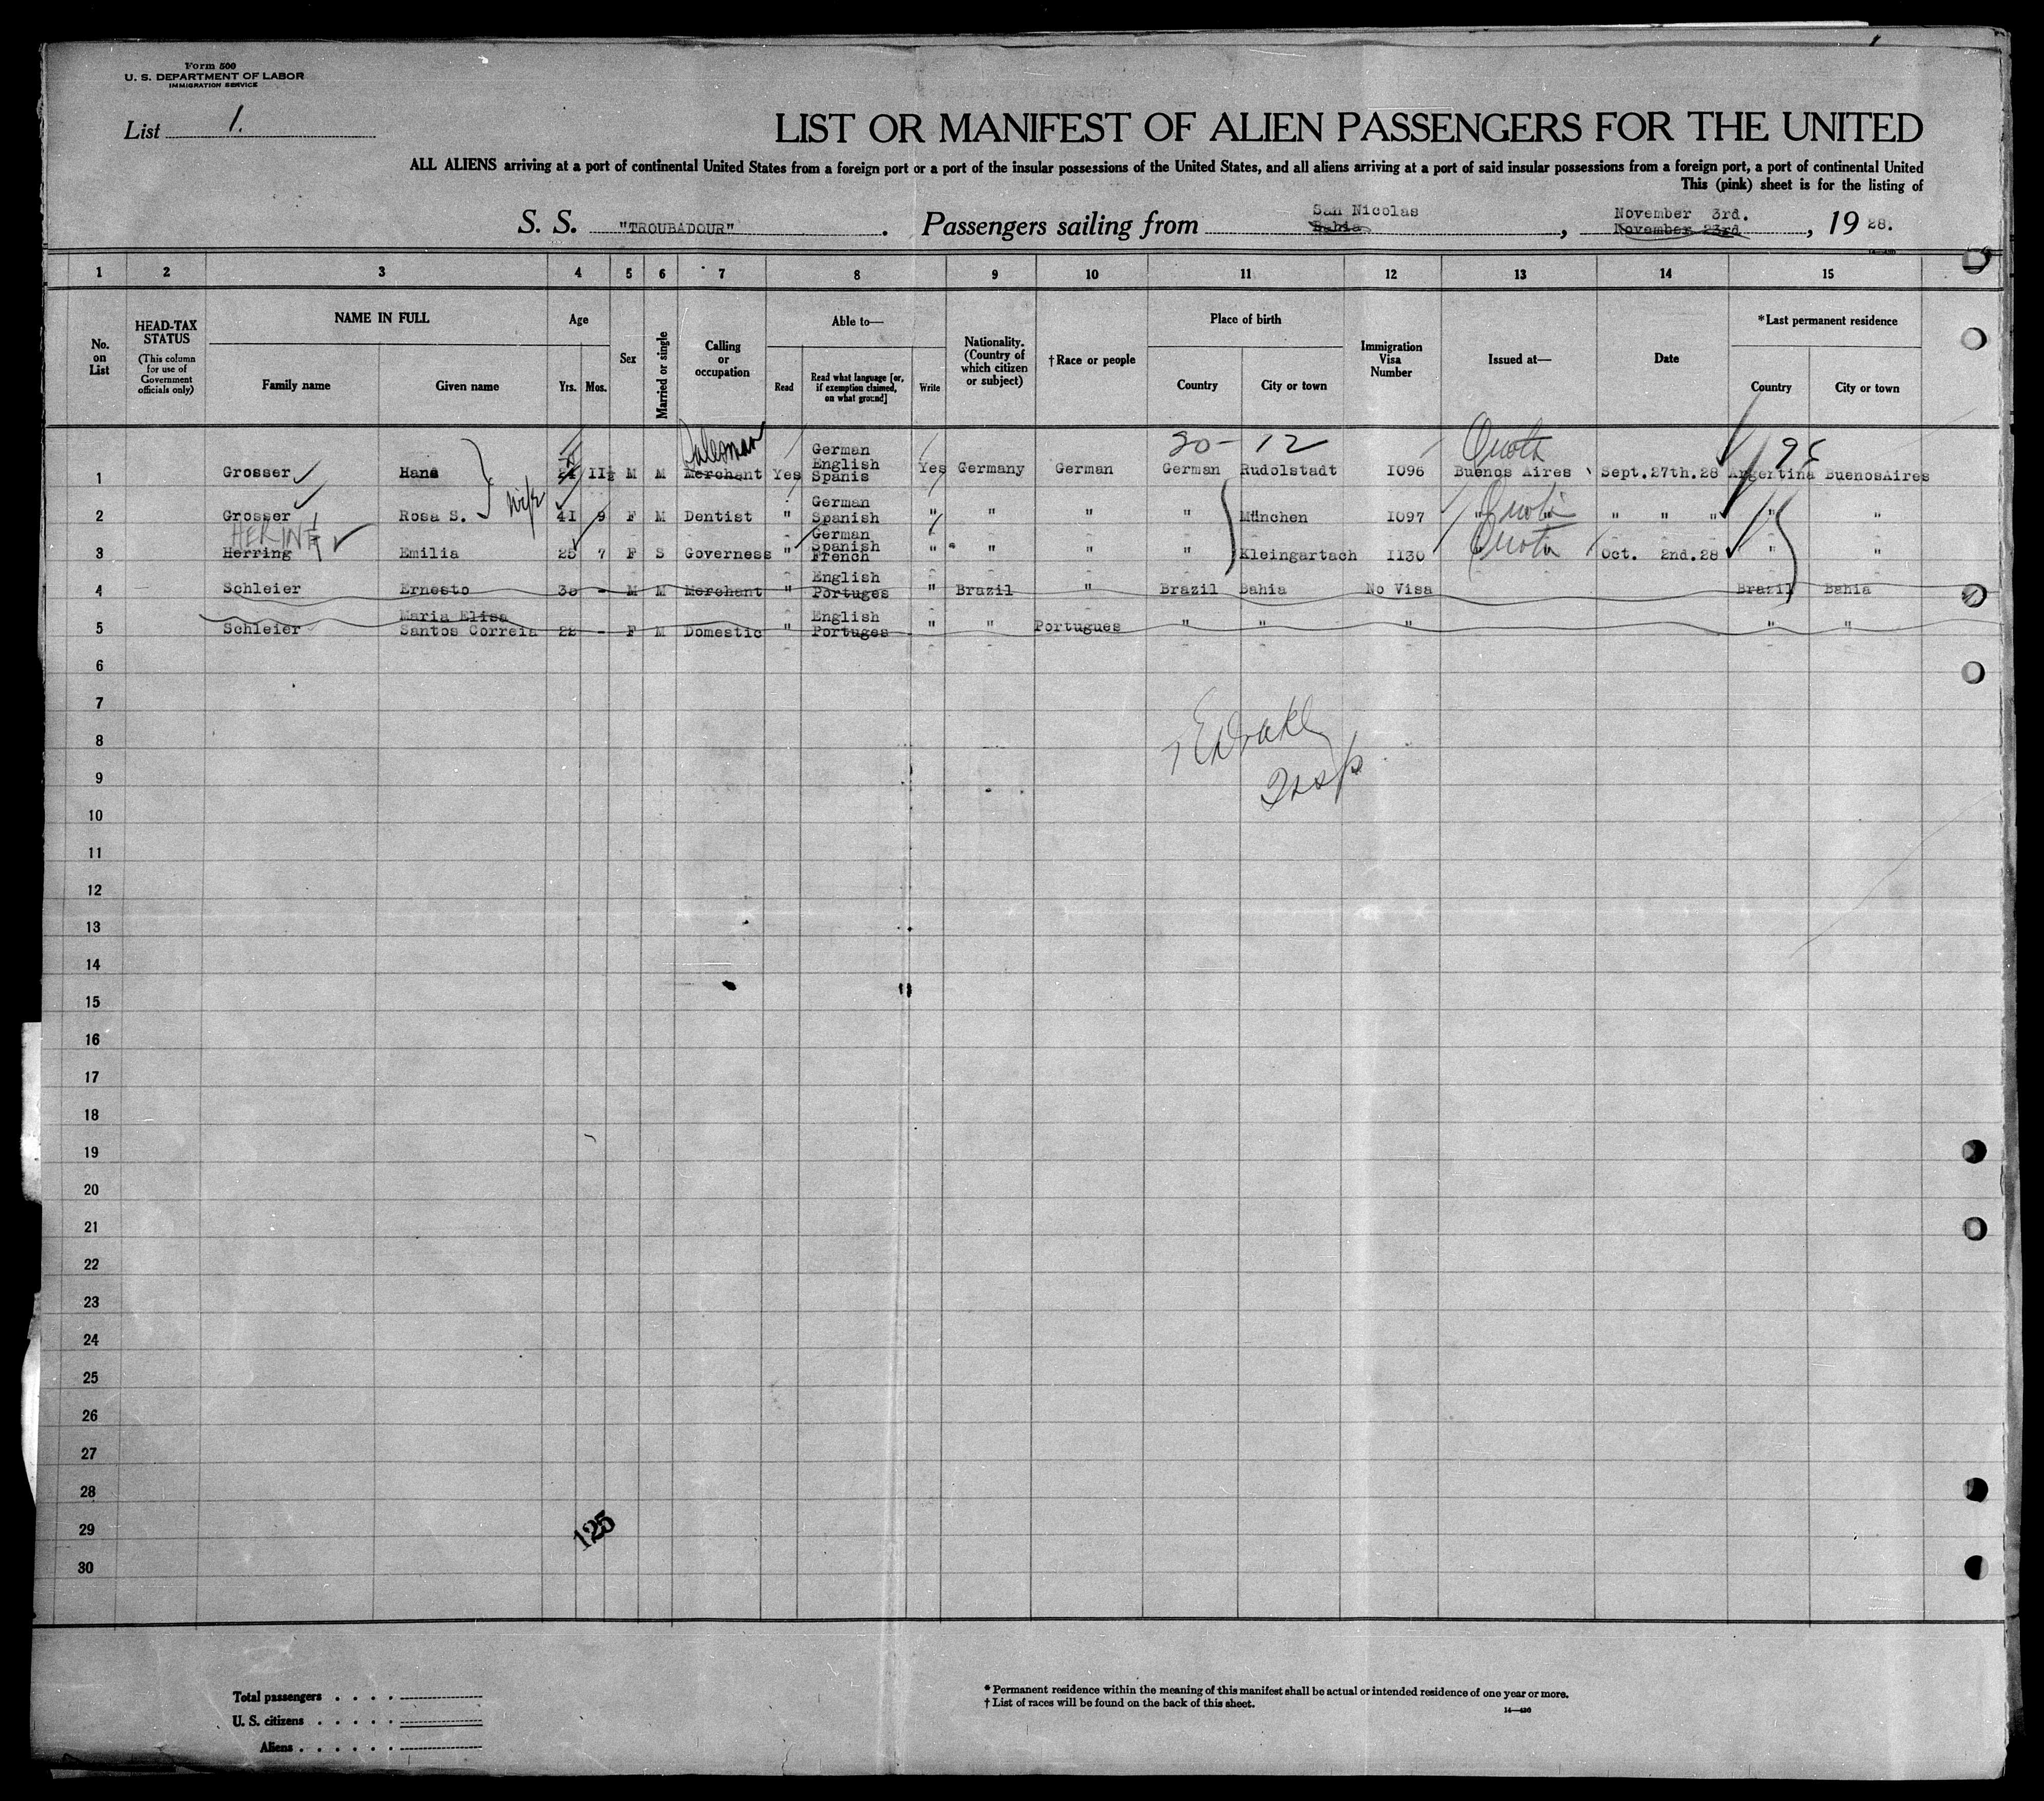 Form 500
U. S. DEPARTMENT OF LABOR
IMMIGRATION SERVICE
List 1.
LIST OR MANIFEST OF ALIEN PASSENGERS FOR THE UNITED
ALL ALIENS arriving at a port of continental United States from a foreign port or a port of the insular possessions of the United States, and all aliens arriving at a port of said insular possessions from a foreign port, a port of continental United
This (pink) sheet is for the listing of
San Nicolas November 3rd.
S. S. "TROUBADOUR". Passengers sailing from Bahia, November 23rd, 19 28.
1 2 3 4 5 6 7 8 9 10 11 12 13 14 15
No. on List
HEAD-TAX STATUS
(This column for use of Government officials only)
NAME IN FULL
Family name Given name
Age
Yrs. Mos.
Sex
Married or single
Calling or occupation
Able to—
Read
Read what language [or, if exemption claimed, on what ground]
Write
Nationality. (Country of which citizen or subject)
†Race or people
Place of birth
Country City or town
Immigration Visa Number
Issued at—
Date
*Last permanent residence
Country City or town
Salesman 30- 12 Quota
German
English
1 Grosser Hans 11½ M M Merchant Yes Spanis Yes Germany German German Rudolstadt 1096 Buenos Aires Sept.27th.28 Argentina BuenosAires
wife
German
2 Grosser Rosa S. 41 9 F M Dentist " Spanish " " " " München 1097 " Quota " " " " " "
HERING
German
Spanish
3 Herring Emilia 25 7 F S Governess " French " " " " Kleingartach 1130 Quota Oct. 2nd.28 " "
English
4 Schleier Ernesto 30 - M M Merchant " Portuges " Brazil " Brazil Bahia No Visa Brazil Bahia
Maria Elisa English
5 Schleier Santos Correia 22 - F M Domestic " Portuges " " Portugues " " " " "
6
7
8
9
10
11
12
13
14
15
16
17
18
19
20
21
22
23
24
25
26
27
28
29
30
Insp
125
Total passengers . . . .
U. S. citizens . . . . .
Aliens . . . . . .
* Permanent residence within the meaning of this manifest shall be actual or intended residence of one year or more.
† List of races will be found on the back of this sheet.